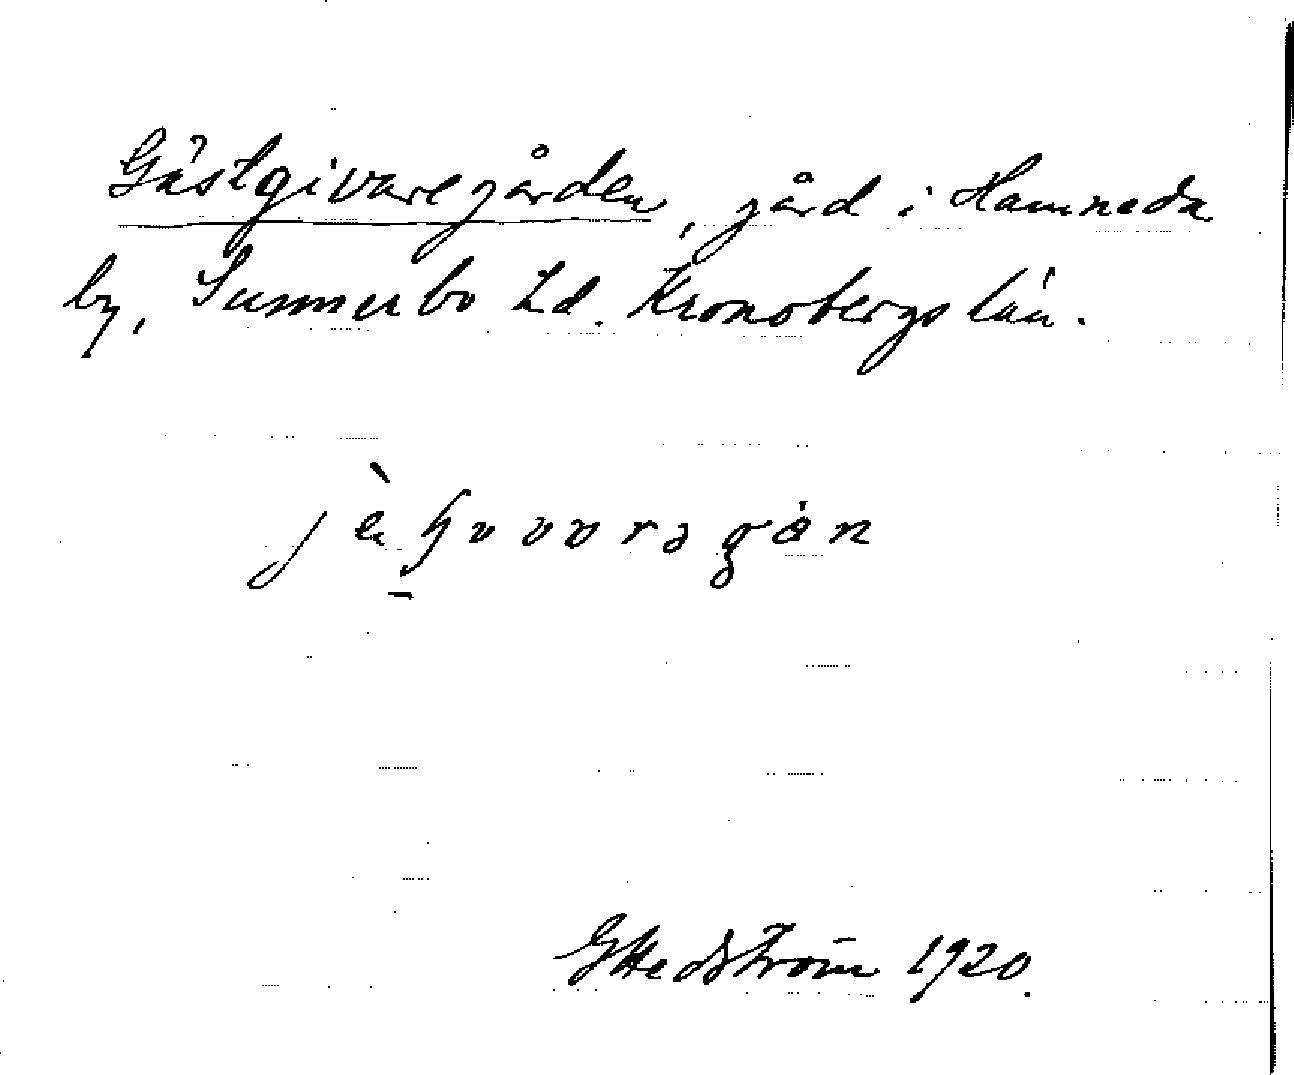 Gästgivaregården, gård i Hamneda
by, Sunnerbo hd. Kronobergs län.
GHedström 1920.